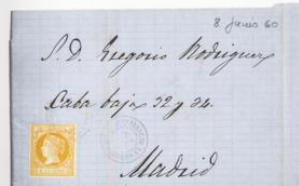 8. Junio 60
S. D. Gregorio Rodriguez
Caba baja 32 y 34.
Madrid